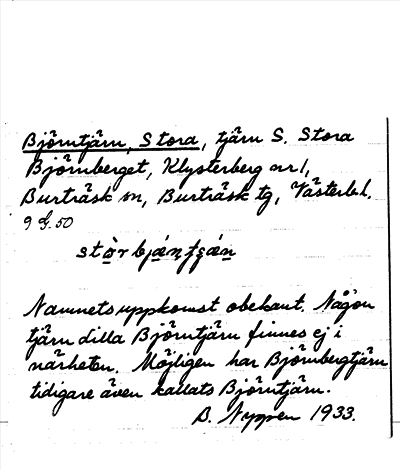 Björntjärn, Stora, tjärn S. Stora
Björnberget, Klysterberg nr 1,
Burträsk sn, Burträsk tg, Västerb. l.
9 G. 50
stòrbjæ̀ṇtʂæ̀ṇ
Namnets uppkomst obekant. Någon
tjärn lilla Björntjärn finnes ej i
närheten. Möjligen har Björnbergtjärn
tidigare även kallats Björntjärn.
B. Nyppen 1933.